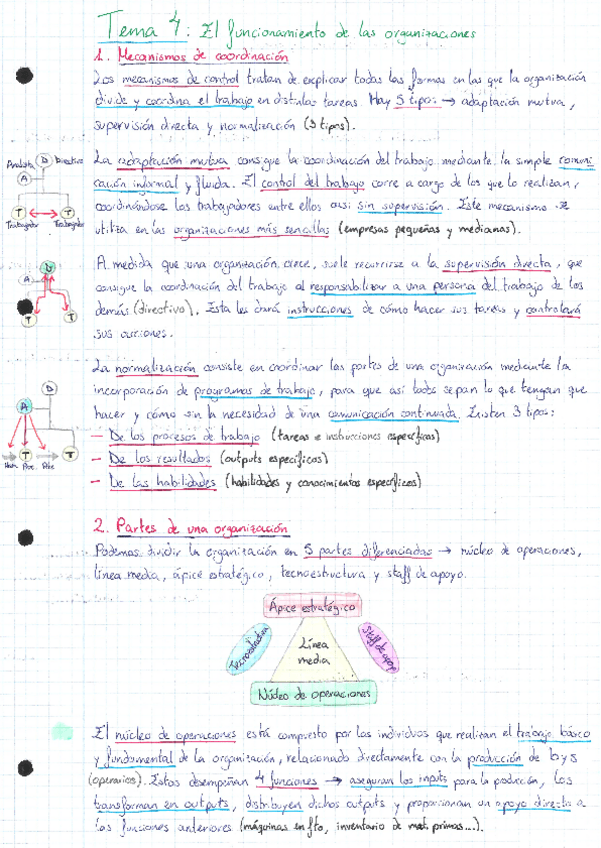 Tema 4: El funcionamiento de las organizaciones
1. Mecanismos de coordinación
Los mecanismos de control tratan de explicar todas las formas en las que la organización
divide y coordina el trabajo en distintas tareas. Hay 5 tipos → adaptación mutua,
supervisión directa y normalización (3 tipos).
Analista D Directivo
A
T T
Trabajador Trabajador
La adaptación mutua consigue la coordinación del trabajo mediante la simple comuni
cación informal y fluida. El control del trabajo corre a cargo de los que lo realizan,
coordinándose los trabajadores entre ellos casi sin supervisión. Este mecanismo se
utiliza en las organizaciones más sencillas (empresas pequeñas y medianas).
D
A
T T
A medida que una organización crece, suele recurrirse a la supervisión directa, que
consigue la coordinación del trabajo al responsabilizar a una persona del trabajo de los
demás (directivo). Esta les dará instrucciones de cómo hacer sus tareas y controlará
sus acciones.
D
A
T T
Hab Proc
La normalización consiste en coordinar las partes de una organización mediante la
incorporación de programas de trabajo, para que así todos sepan lo que tengan que
hacer y cómo sin la necesidad de una comunicación continuada. Existen 3 tipos:
- De los procesos de trabajo (tareas e instrucciones específicas)
- De los resultados (outputs específicos)
- De las habilidades (habilidades y conocimientos específicos)
2. Partes de una organización
Podemos dividir la organización en 5 partes diferenciadas → núcleo de operaciones,
línea media, ápice estratégico, tecnoestructura y staff de apoyo.
Ápice estratégico
Tecnoestructura
Línea
media
Staff de apoyo
Núcleo de operaciones
El núcleo de operaciones está compuesto por los individuos que realizan el trabajo básico
y fundamental de la organización, relacionado directamente con la producción de b y s
(operarios). Estos desempeñan 4 funciones → aseguran los inputs para la producción, los
transforman en outputs, distribuyen dichos outputs y proporcionan un apoyo directo a
las funciones anteriores (máquinas en fto, inventario de mat. primas...).